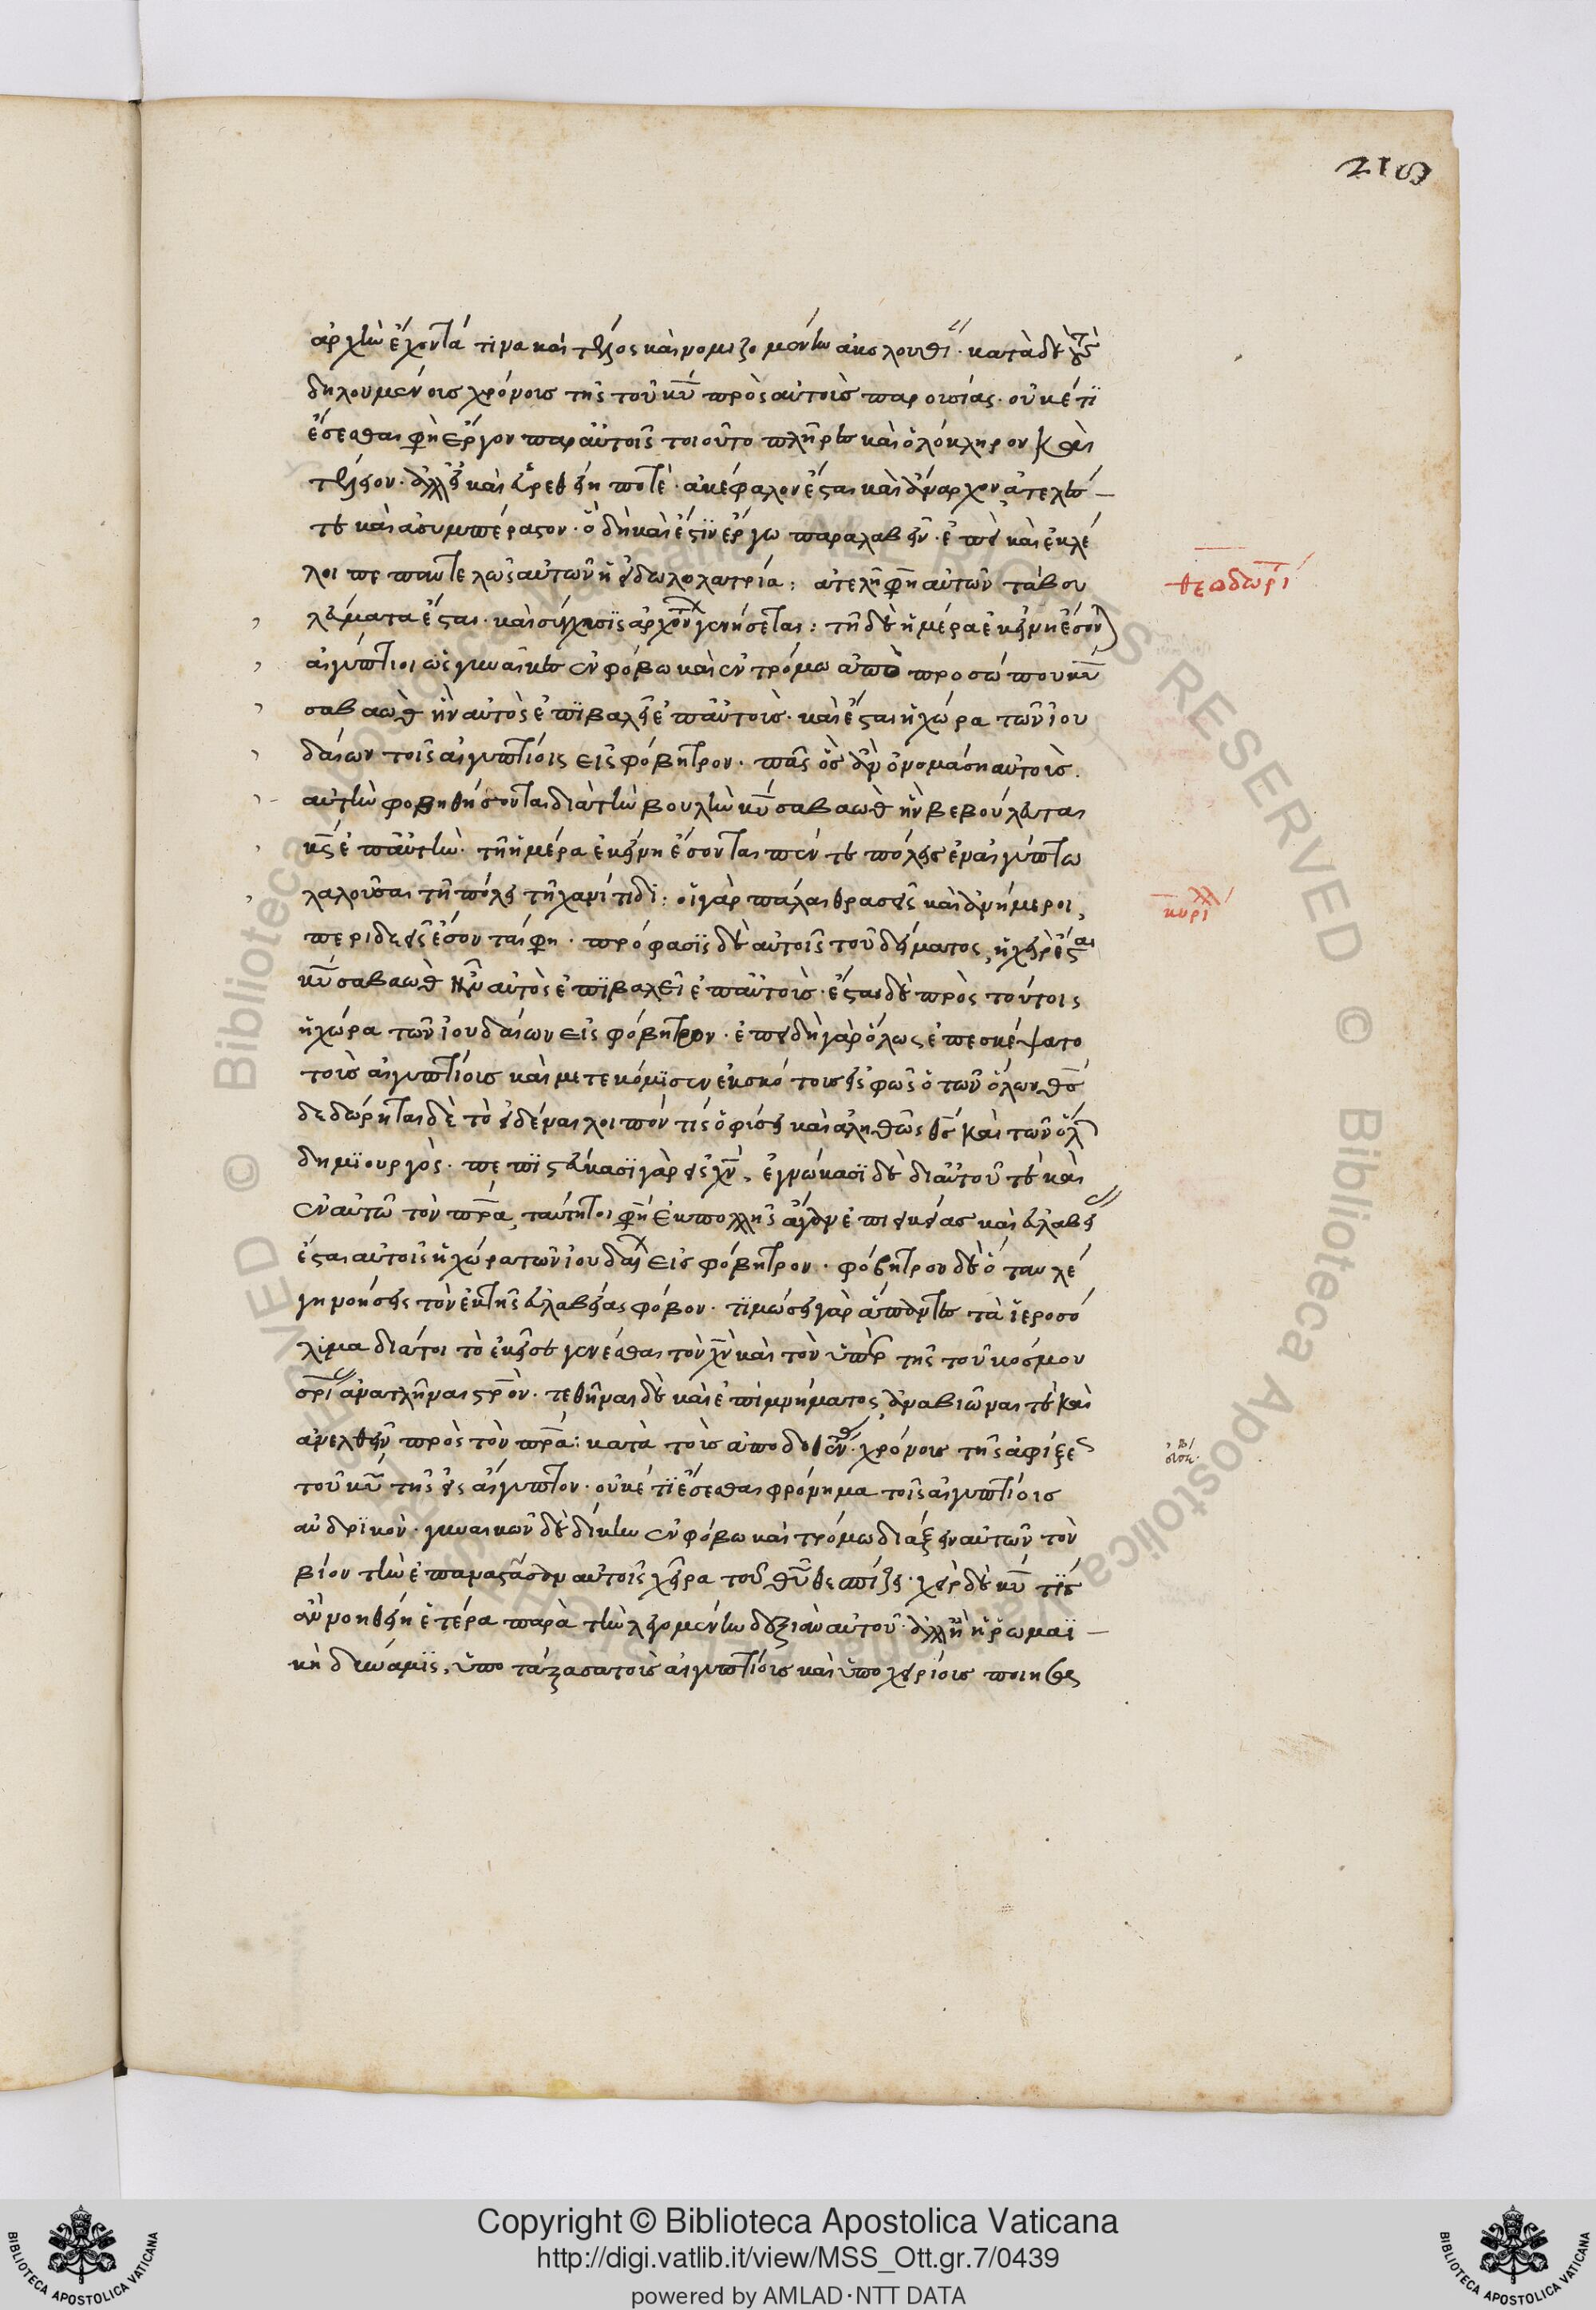 218
ἀρχὴν ἔχοντά τινα καὶ τέλος καὶ νομιζομένην ἀκολουθί· κατὰ δὲ τοὺς
δηλουμένους χρόνους τῆς τοῦ κυ πρὸς αὐτοὺς παρουσίας· οὐκέτι
ἔσεσθαι φησὶν ἔργον παρ αὐτοῖς τοιοῦτο πλῆρες καὶ ὁλόκληρον καὶ
τέλειον· ἀλλ εἰ καὶ εὑρεθείη ποτὲ· ἀκέφαλον ἔσται καὶ ἄναρχον ἀτελές
τε καὶ ἀσυμπέραστον· ὃ δὴ καὶ ἔστιν ἔργω παραλαβεῖν· ἐπεὶ καὶ ἐκλέ
λοιπε παντελῶς αὐτῶν ἡ εἰδωλολατρία: ἀτελῆ φησὶν αὐτῶν τὰ βου
λεύματα ἔσται· καὶ σύγχυσις ἀρχόντων γενήσεται: τῆ δὲ ἡμέρα ἐκείνη ἔσονται
αἰγύπτιοι ὡς γυναῖκες ἐν φόβω καὶ ἐν τρόμω ἀπὸ προσώπου κυ
σαβαωθ ἣν αὐτὸς ἐπιβαλεῖ ἐπ αὐτούς· καὶ ἔσται ἡ χώρα τῶν ἰου
δαίων τοῖς αἰγυπτίοις εἰς φόβητρον· πᾶς ὃς ἂν ὀνομάση αὐτοὺς·
αὐτὴν φοβηθήσονται διὰ τὴν βουλὴν κυ σαβαωθ ἣν βεβούλευται
κς ἐπ αὐτὴν· τῆ ἡμέρα ἐκείνη ἔσονται πέντε πόλεις ἐν αἰγύπτω
λαλοῦσαι τῆ πόλει τῆ χανίτιδι: οἱ γὰρ πάλαι θρασεῖς καὶ ἀνήμεροι,
περιδεεῖς ἔσονται φησι· πρόφασις δὲ αὐτοῖς τοῦ δείματος, ἡ χεὶρ ἔσται
κυ σαβαωθ ἣν αὐτὸς ἐπιβαλεῖ ἐπ αὐτούς· ἔσται δὲ πρὸς τούτοις
ἡ χώρα τῶν ἰουδαίων εἰς φόβητρον· ἐπειδὴ γὰρ ὅλως ἐπεσκέψατο
τοὺς αἰγυπτίους καὶ μετεκόμισεν ἐκ σκότους εἰς φῶς ὁ τῶν ὅλων θς
δεδώρηται δὲ τὸ εἰδέναι λοιπόν τίς ὁ φύσει καὶ ἀληθῶς θς καὶ τῶν ὅλων
δημιουργὸς· πεπιστεύκασι γὰρ εἰς χν, ἐγνώκασι δὲ δι αὐτοῦ τε καὶ
ἐν αὐτῶ τὸν πρα, ταύτητοι φησὶν ἐκ πολλῆς ἄγαν ἐπιεικείας καὶ εὐλαβεί
ἔσται αὐτοῖς ἡ χώρα τῶν ἰουδαίων εἰς φόβητρον· φόβητρον δὲ ὅταν λέ
γη νοήσεις τὸν ἐκ τῆς εὐλαβείας φόβον· τιμῶσι γὰρ ἅπαντες τὰ ἱεροσό
λυμα διάτοι τὸ ἐκεῖσε γενέσθαι τὸν χν καὶ τὸν ὑπὲρ τῆς τοῦ κόσμου
σρί ἀνατλῆναι σρὸν· τεθῆναι δὲ καὶ ἐπὶ μνήματος, ἀναβιῶναι τε καὶ
ἀνελθεῖν πρὸς τὸν πρα: κατὰ τοὺς ἀποδοθέν χρόνους τῆς ἀφίξεως
τοῦ κυ τῆς εἰς αἴγυπτον· οὐκέτι ἔσεσθαι φρόνημα τοῖς αἰγυπτίοις
ἀνδρικὸν· γυναικῶν δὲ δίκην ἐν φόβω καὶ τρόμω διάξειν αὐτῶν τὸν
βίον τὴν ἐπαναστᾶσαν αὐτοῖς χεῖρα τοῦ θυ θεσπίζει· χεὶρ δὲ κυ τίς
ἂν νοηθείη ἑτέρα παρὰ τὴν λεγομένην δεξιὰν αὐτοῦ· ἀλλ ἢ ἡ ῥωμαϊ
κὴ δύναμις, ὑποτάξασα τοὺς αἰγυπτίους καὶ ὑποχειρίους ποιησα
θεοδωρί
κυρί
Copyright © Biblioteca Apostolica Vaticana
http://digi.vatlib.it/view/MSS_Ott.gr.7/0439
powered by AMLAD·NTT DATA